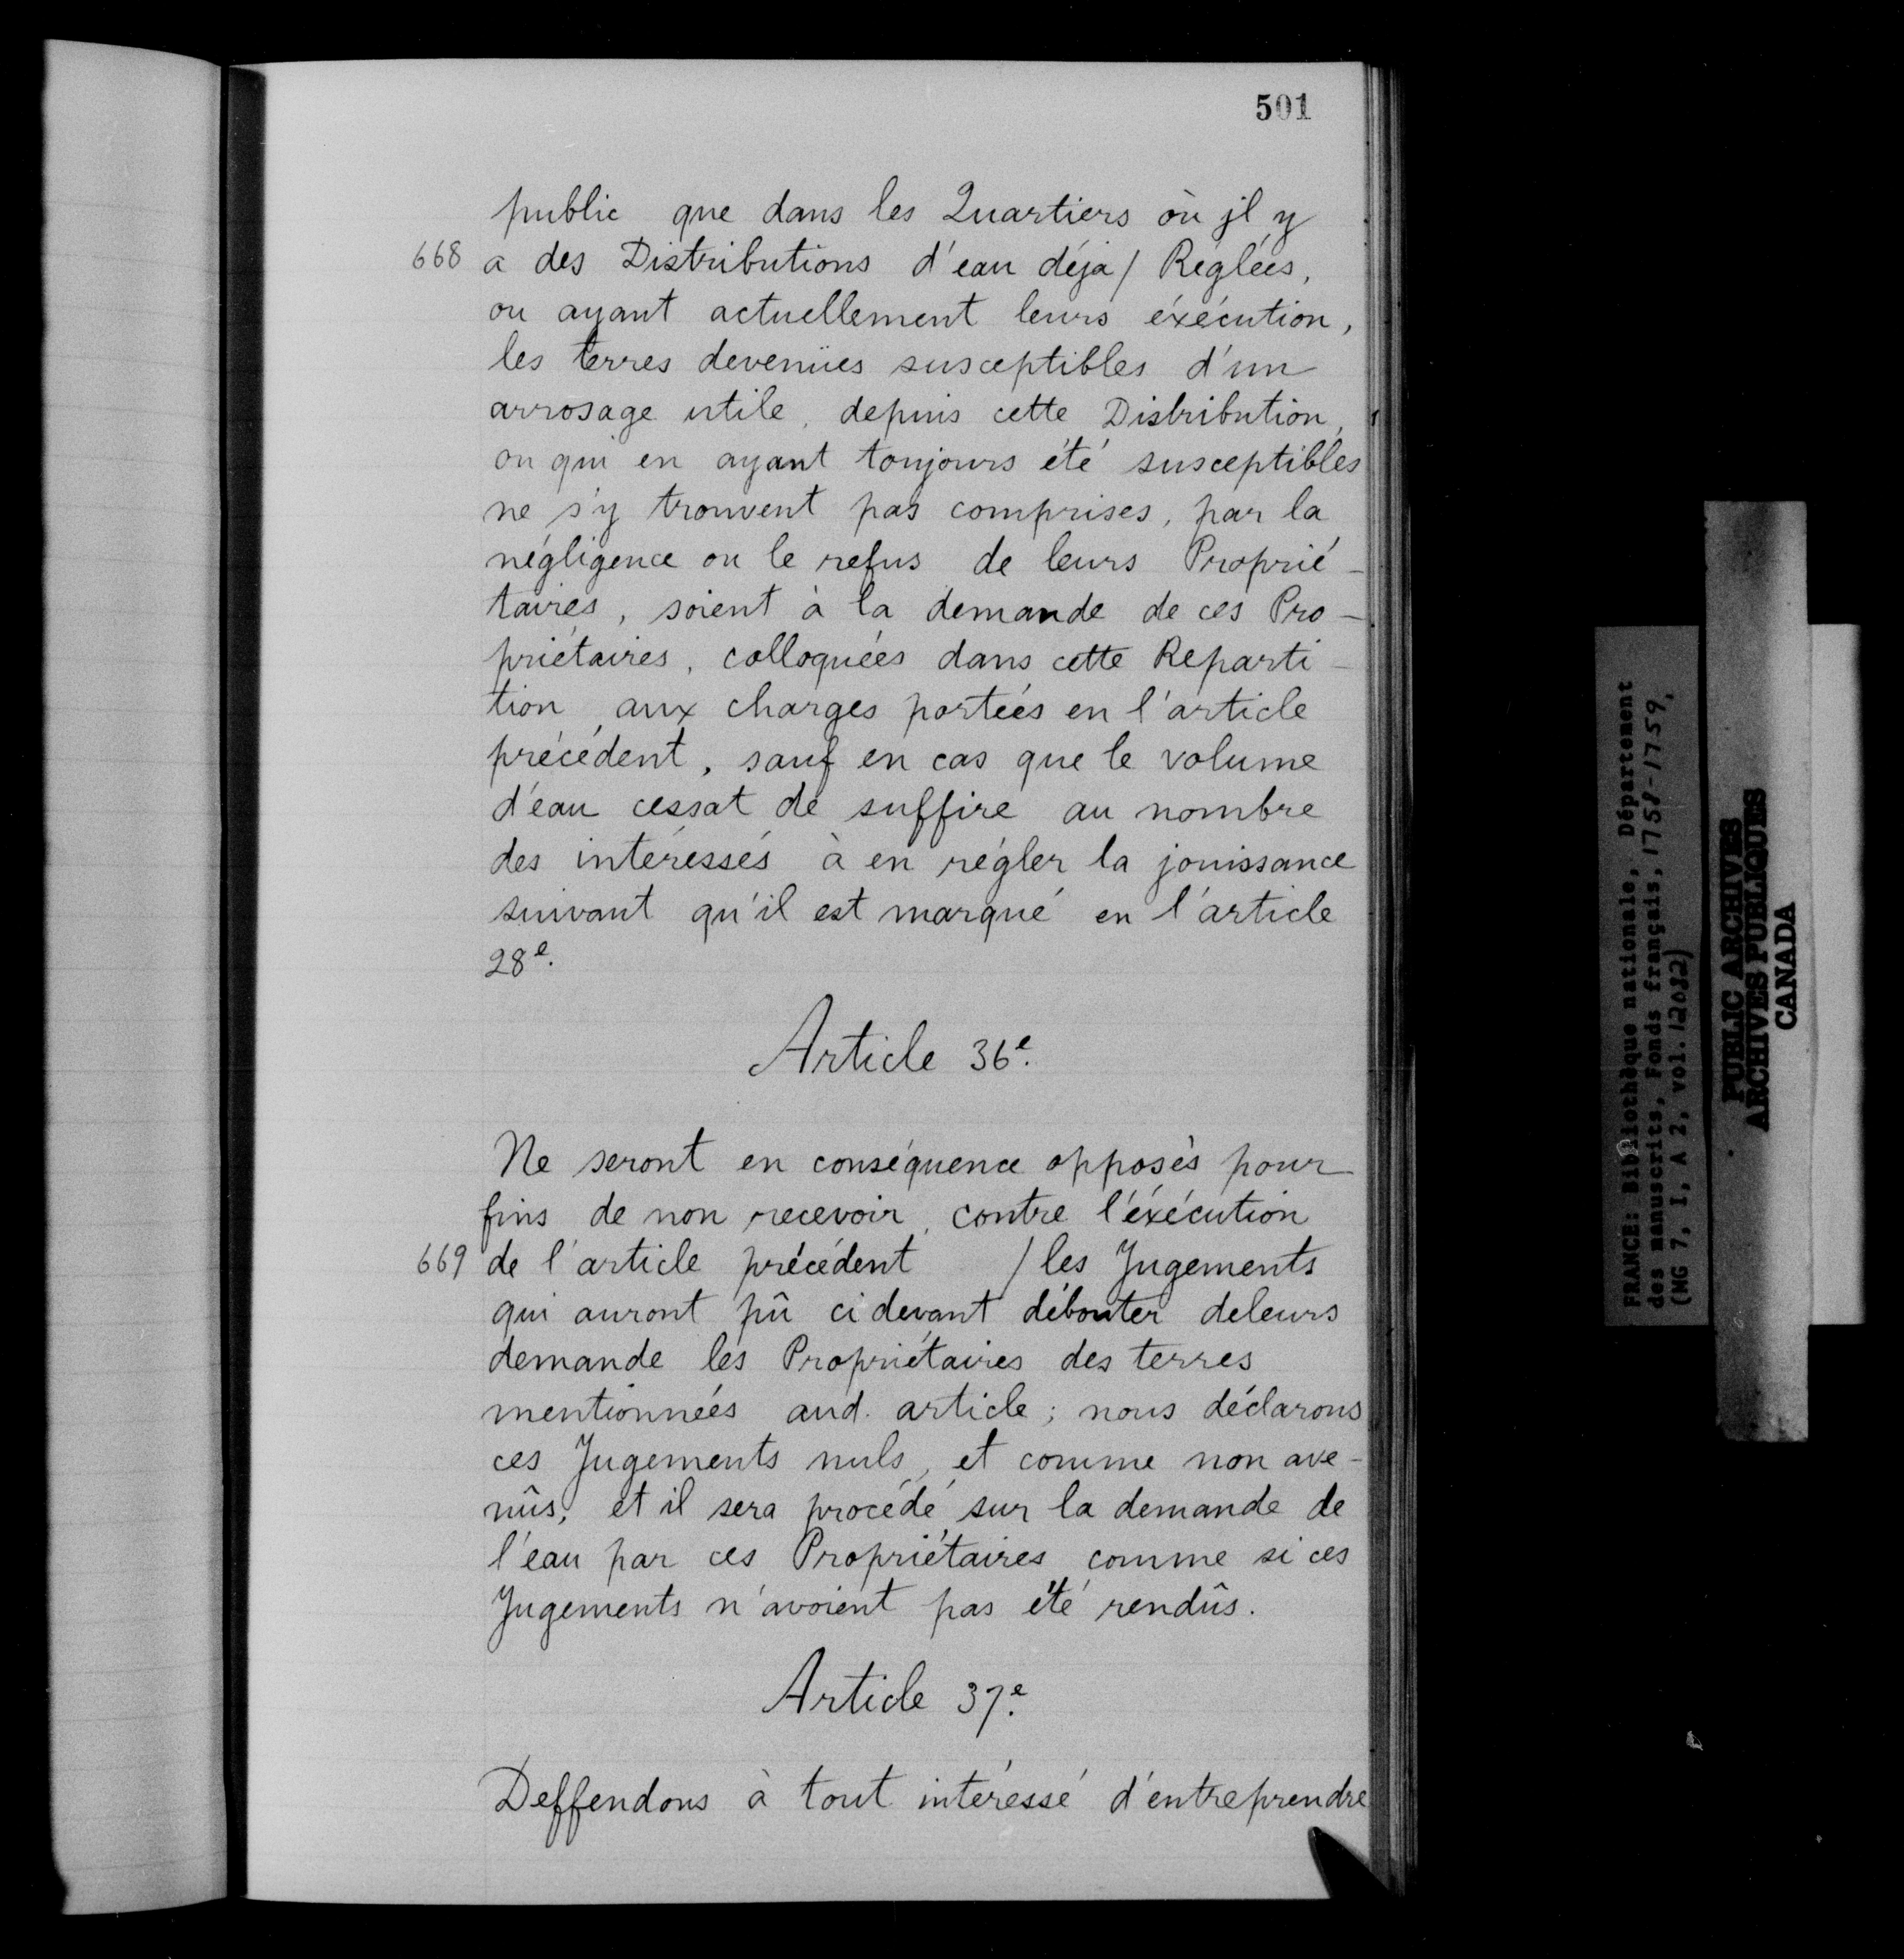 501
public que dans les Quartiers où jl y
668 a des Distributions d'eau déja / Réglées,
ou ayant actuellement leurs éxécution,
les terres devenües susceptibles d'un
arrosage utile, depuis cette Distribution,
ou qui en ayant toujours été susceptibles
ne s'y trouvent pas comprises, par la
négligence ou le refus de leurs Proprié-
taires, soient à la demande de ces Pro-
priétaires, colloquées dans cette Reparti-
tion, aux charges portées en l'article
précédent, sauf en cas que le volume
d'eau cessat de suffire au nombre
des intéressés à en régler la jouissance
suivant qu'il est marqué en l'article
28e.
Article 36e.
Ne seront en conséquence opposés pour
fins de non recevoir, contre l'éxécution
669 de l'article précédent / les Jugements
qui auront pû ci devant débouter deleurs
demande les Propriétaires des terres
mentionnées aud. article; nous déclarons
ces Jugements nuls, et comme non ave-
nûs, et il sera procédé sur la demande de
l'eau par ces Propriétaires comme si ces
Jugements n'avoient pas été rendûs.
Article 37e.
Deffendons à tout intéressé d'entreprendre
FRANCE: Bibliothèque nationale, Département
des manuscrits, Fonds français, 1751-1759,
(MG 7, I, A 2, vol. 12082)
PUBLIC ARCHIVES
ARCHIVES PUBLIQUES
CANADA